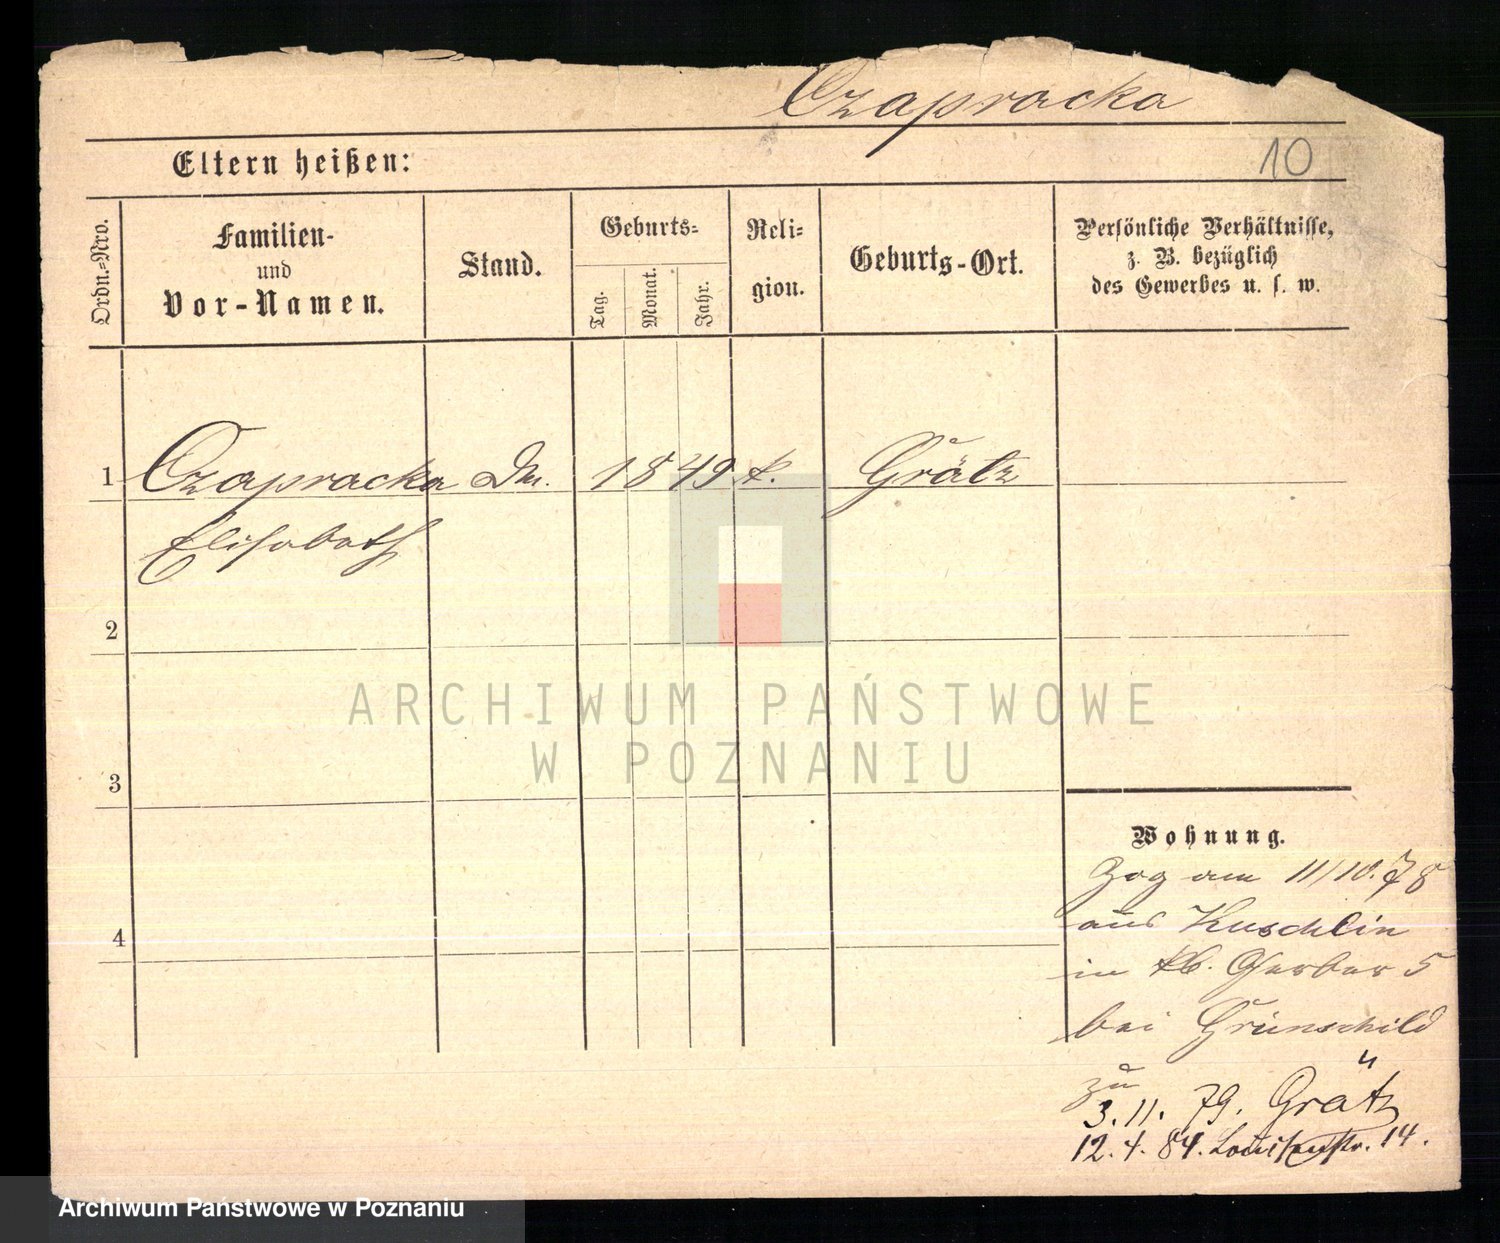 Czapracka
10
Eltern heißen:
Ordn.-Nro.
Familien-
und
Vor-Namen.
Stand.
Geburts-
Tag.
Monat.
Jahr.
Reli-
gion.
Geburts-Ort.
Persönliche Verhältnisse,
z. B. bezüglich
des Gewerbes u. s. w.
1 Czapracka Dm. 1849 k. Grätz
Elisabeth
2
3
4
Wohnung.
Zog am 11/10.78
aus Kuschlin
in kl. Gerber 5
bei Grünschild
zu
3.11.79. Grätz
12.4.84. Louisenstr. 14.
ARCHIWUM PAŃSTWOWE
W POZNANIU
Archiwum Państwowe w Poznaniu